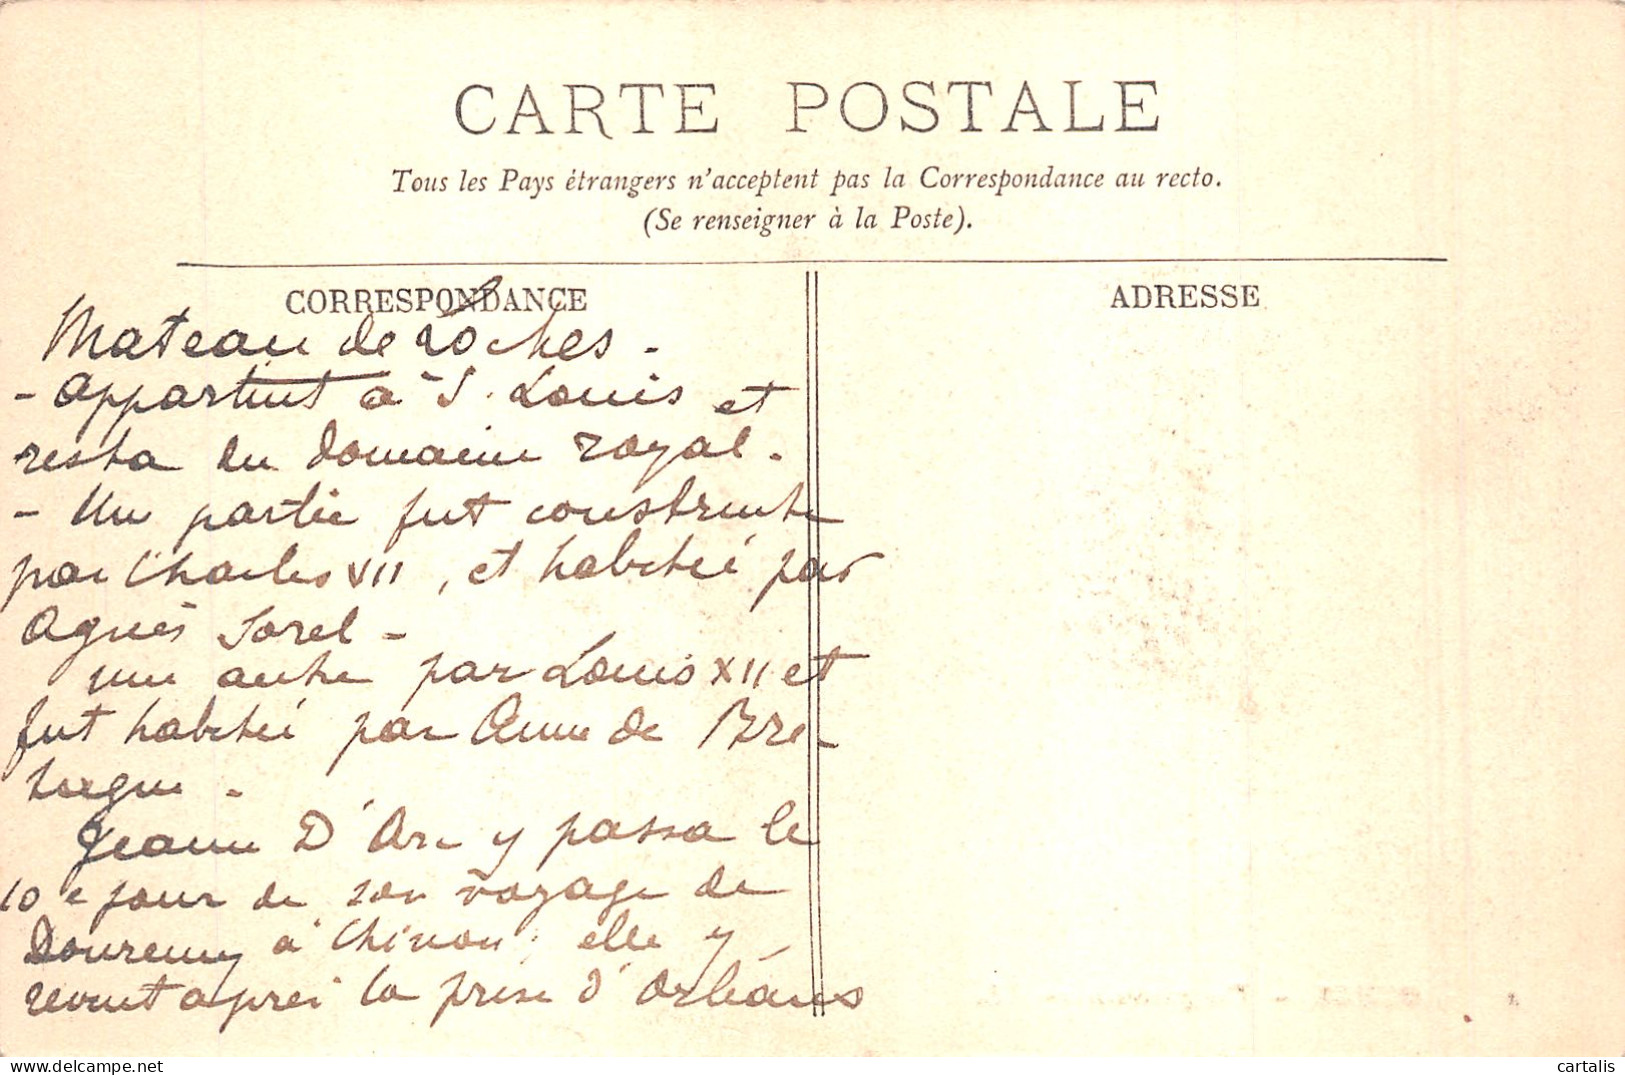 CARTE POSTALE
Tous les Pays étrangers n'acceptent pas la Correspondance au recto.
(Se renseigner à la Poste).
CORRESPONDANCE
ADRESSE
Chateau de Loches -
- appartint à S. Louis et
resta du domaine royal.
- Une partie fut construite
par Charles VII, et habitée par
Agnès Sorel -
une autre par Louis XII et
fut habitée par Anne de Bre-
tagne -
Jeanne D'Arc y passa le
10e jour de son voyage de
Domremy à Chinon ; elle y
revint après la prise d'Orléans
cartalis